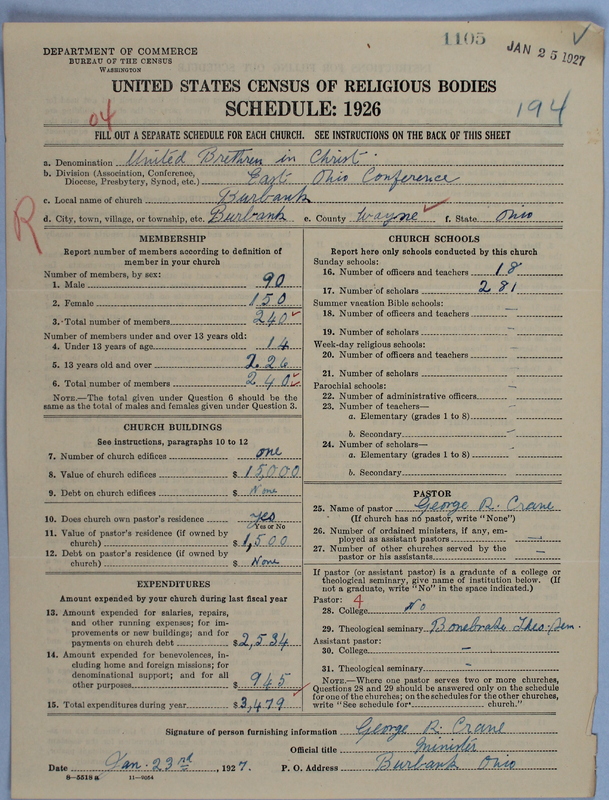 1105
JAN 25 1927
DEPARTMENT OF COMMERCE
BUREAU OF THE CENSUS
WASHINGTON
UNITED STATES CENSUS OF RELIGIOUS BODIES
SCHEDULE: 1926
04
194
FILL OUT A SEPARATE SCHEDULE FOR EACH CHURCH. SEE INSTRUCTIONS ON THE BACK OF THIS SHEET
a. Denomination United Brethren in Christ.
b. Division (Association, Conference, Diocese, Presbytery, Synod, etc.) East Ohio Conference
c. Local name of church Burbank
d. City, town, village, or township, etc. Burbank e. County Wayne f. State Ohio
R
MEMBERSHIP
Report number of members according to definition of member in your church
Number of members, by sex:
1. Male 90
2. Female 150
3. Total number of members 240
Number of members under and over 13 years old:
4. Under 13 years of age 14
5. 13 years old and over 226
6. Total number of members 240
NOTE.—The total given under Question 6 should be the same as the total of males and females given under Question 3.
CHURCH BUILDINGS
See instructions, paragraphs 10 to 12
7. Number of church edifices one
8. Value of church edifices $ 15,000
9. Debt on church edifices $ None
10. Does church own pastor's residence? yes
Yes or No
11. Value of pastor's residence (if owned by church) $ 1,500
12. Debt on pastor's residence (if owned by church) $ None
EXPENDITURES
Amount expended by your church during last fiscal year
13. Amount expended for salaries, repairs, and other running expenses; for improvements or new buildings; and for payments on church debt $ 2,534
14. Amount expended for benevolences, including home and foreign missions; for denominational support; and for all other purposes $ 945
15. Total expenditures during year $ 3,479
CHURCH SCHOOLS
Report here only schools conducted by this church
Sunday schools:
16. Number of officers and teachers 18
17. Number of scholars 281
Summer vacation Bible schools:
18. Number of officers and teachers —
19. Number of scholars —
Week-day religious schools:
20. Number of officers and teachers —
21. Number of scholars —
Parochial schools:
22. Number of administrative officers —
23. Number of teachers—
a. Elementary (grades 1 to 8) —
b. Secondary —
24. Number of scholars—
a. Elementary (grades 1 to 8) —
b. Secondary —
PASTOR
25. Name of pastor George R. Crane
(If church has no pastor, write "None")
26. Number of ordained ministers, if any, employed as assistant pastors —
27. Number of other churches served by the pastor or his assistants —
If pastor (or assistant pastor) is a graduate of a college or theological seminary, give name of institution below. (If not a graduate, write "No" in the space indicated.)
Pastor: 4
28. College No
29. Theological seminary Bonebrake Theo. Sem.
Assistant pastor:
30. College —
31. Theological seminary —
NOTE.—Where one pastor serves two or more churches, Questions 28 and 29 should be answered only on the schedule for one of the churches; on the schedules for the other churches, write "See schedule for church."
Signature of person furnishing information George R. Crane
Official title Minister
Date Jan. 23rd, 1927. P. O. Address Burbank Ohio
8—5518a 11—9054